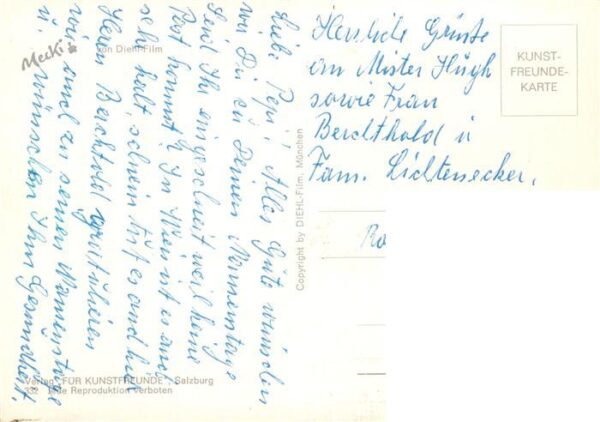 Mecki
von Diehl-Film
Liebe Pepi! Alles Gute wünschen
wir Dir zu Deinen Namenstage
Seid Ihr eingeschneit weil keine
Post kommt? In Wien ist es auch
sehr kalt, schein tut es auch hie
Herrn Berchtold gratulieren
wir auch zu seinen Namenstage
u. wünschen Ihm Gesundheit,
Herzliche Grüsse
an Mister Hügh
sowie Frau
Berchthold u
Fam. Lichtenecker.
KUNST-
FREUNDE-
KARTE
Copyright by DIEHL-Film, München
Ro
Verlag „FÜR KUNSTFREUNDE", Salzburg
332 Jede Reproduktion verboten